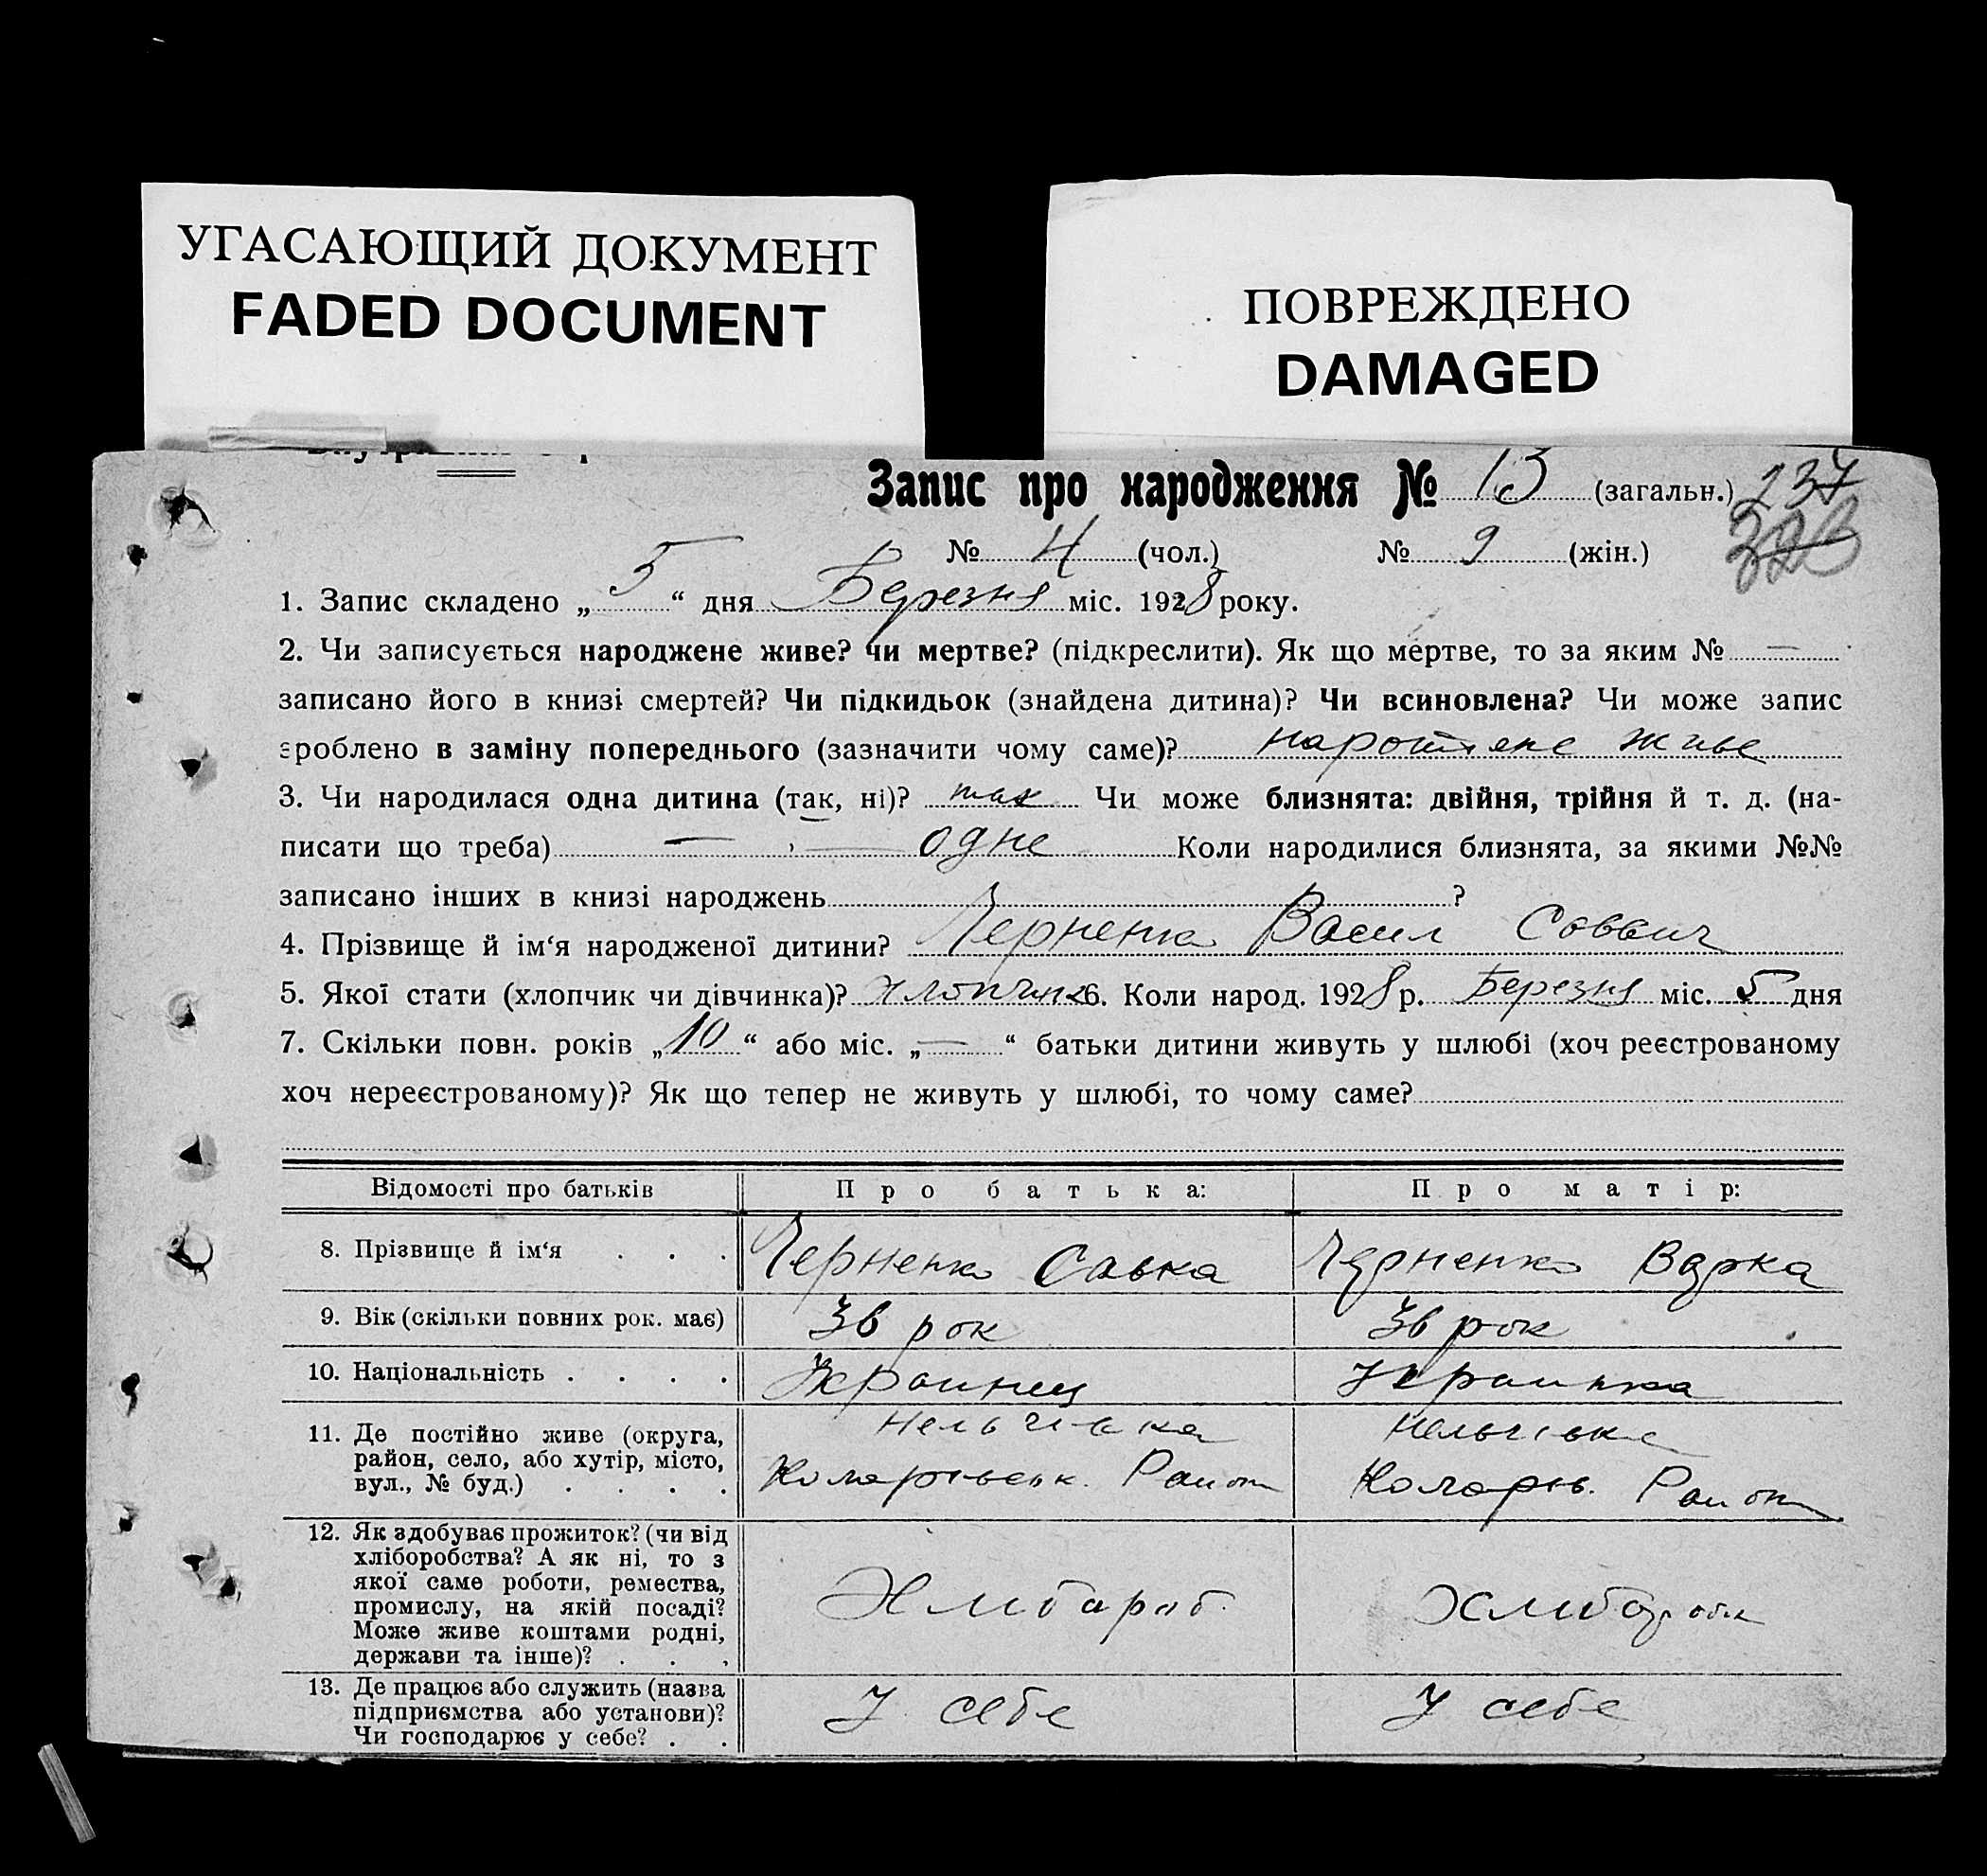 УГАСАЮЩИЙ ДОКУМЕНТ
FADED DOCUMENT
ПОВРЕЖДЕНО
DAMAGED
Запис про народження № 13 (загальн.) 237
№ 4 (чол.) № 9 (жін.)
1. Запис складено „ 5 “ дня Березня міс. 1928 року.
2. Чи записується народжене живе? чи мертве? (підкреслити). Як що мертве, то за яким № —
записано його в книзі смертей? Чи підкидьок (знайдена дитина)? Чи всиновлена? Чи може запис
зроблено в заміну попереднього (зазначити чому саме)? живе
3. Чи народилася одна дитина (так, ні)? так Чи може близнята: двійня, трійня й т. д. (на-
писати що треба) — — одне Коли народилися близнята, за якими №№
записано інших в книзі народжень ?
4. Прізвище й ім‘я народженої дитини? Черненко Васил Саввич
5. Якої стати (хлопчик чи дівчинка)? хлопчик 6. Коли народ. 1928 р. Березня міс. 5 дня
7. Скільки повн. років „ 10 “ або міс. „ — “ батьки дитини живуть у шлюбі (хоч реєстрованому
хоч нереєстрованому)? Як що тепер не живуть у шлюбі, то чому саме?
Відомості про батьків Про батька: Про матір:
8. Прізвище й ім‘я . . . Черненко Савка Черненко Варка
9. Вік (скільки повних рок. має) 36 рок 36 рок
10. Національність . . . . Украинец Украинка
11. Де постійно живе (округа,
район, село, або хутір, місто,
вул., № буд.) . . . . Район Район
12. Як здобуває прожиток? (чи від
хліборобства? А як ні, то з
якої саме роботи, ремества,
промислу, на якій посаді?
Може живе коштами родні,
держави та інше)? . . . Хлибароб
13. Де працює або служить (назва
підприємства або установи)?
Чи господарює у себе? . . У себе У себе